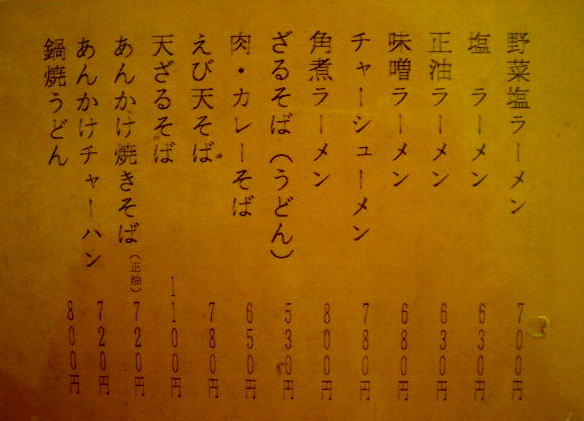 野菜塩ラーメン 700円
塩 ラーメン 630円
正油ラーメン 630円
味噌ラーメン 680円
チャーシューメン 780円
角煮ラーメン 800円
ざるそば(うどん) 530円
肉・カレーそば 650円
えび天そば 780円
天ざるそば 1100円
あんかけ焼きそば(正油) 720円
あんかけチャーハン 720円
鍋焼うどん 800円